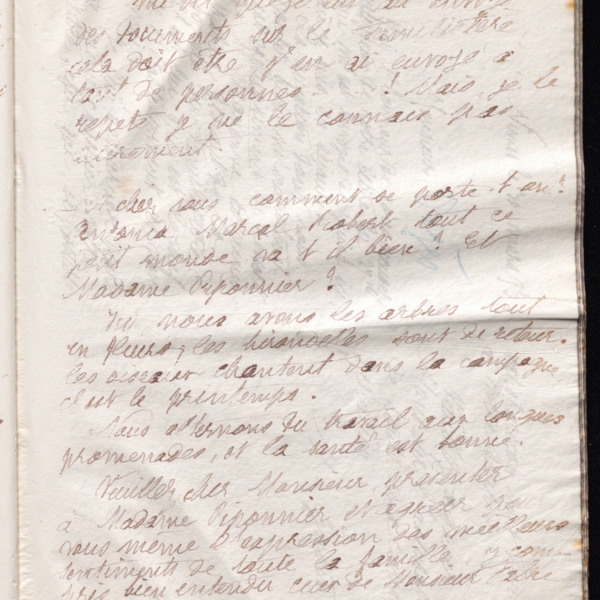 des documents sur le Familistère
cela doit être j'en ai envoyé à
tant de personnes - ! Mais je le
répète je ne le connais pas
Chez vous comment se porte-t-on?
Antonia Marcel Robert tout ce
petit monde va t il bien? Et
Madame Piponnier?
Ici, nous avons les arbres tout
en fleurs, les hirondelles sont de retour.
les oiseaux chantent dans la campagne
c'est le printemps.
Nous alternons du travail aux longues
promenades, et la santé est bonne.
Veuillez cher Monsieur, présenter
à Madame Piponnier et agréer pour
vous même l'expression des meilleurs
sentiments de toute la famille y com-
pris bien entendu ceux de Monsieur Fabre